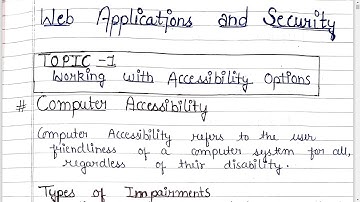 Web Applications and Security
TOPIC -1
Working with Accessibility Options
# Computer Accessibility
Computer Accessibility refers to the user
friendliness of a computer system for all,
regardless of their disability.
Types of Impairments